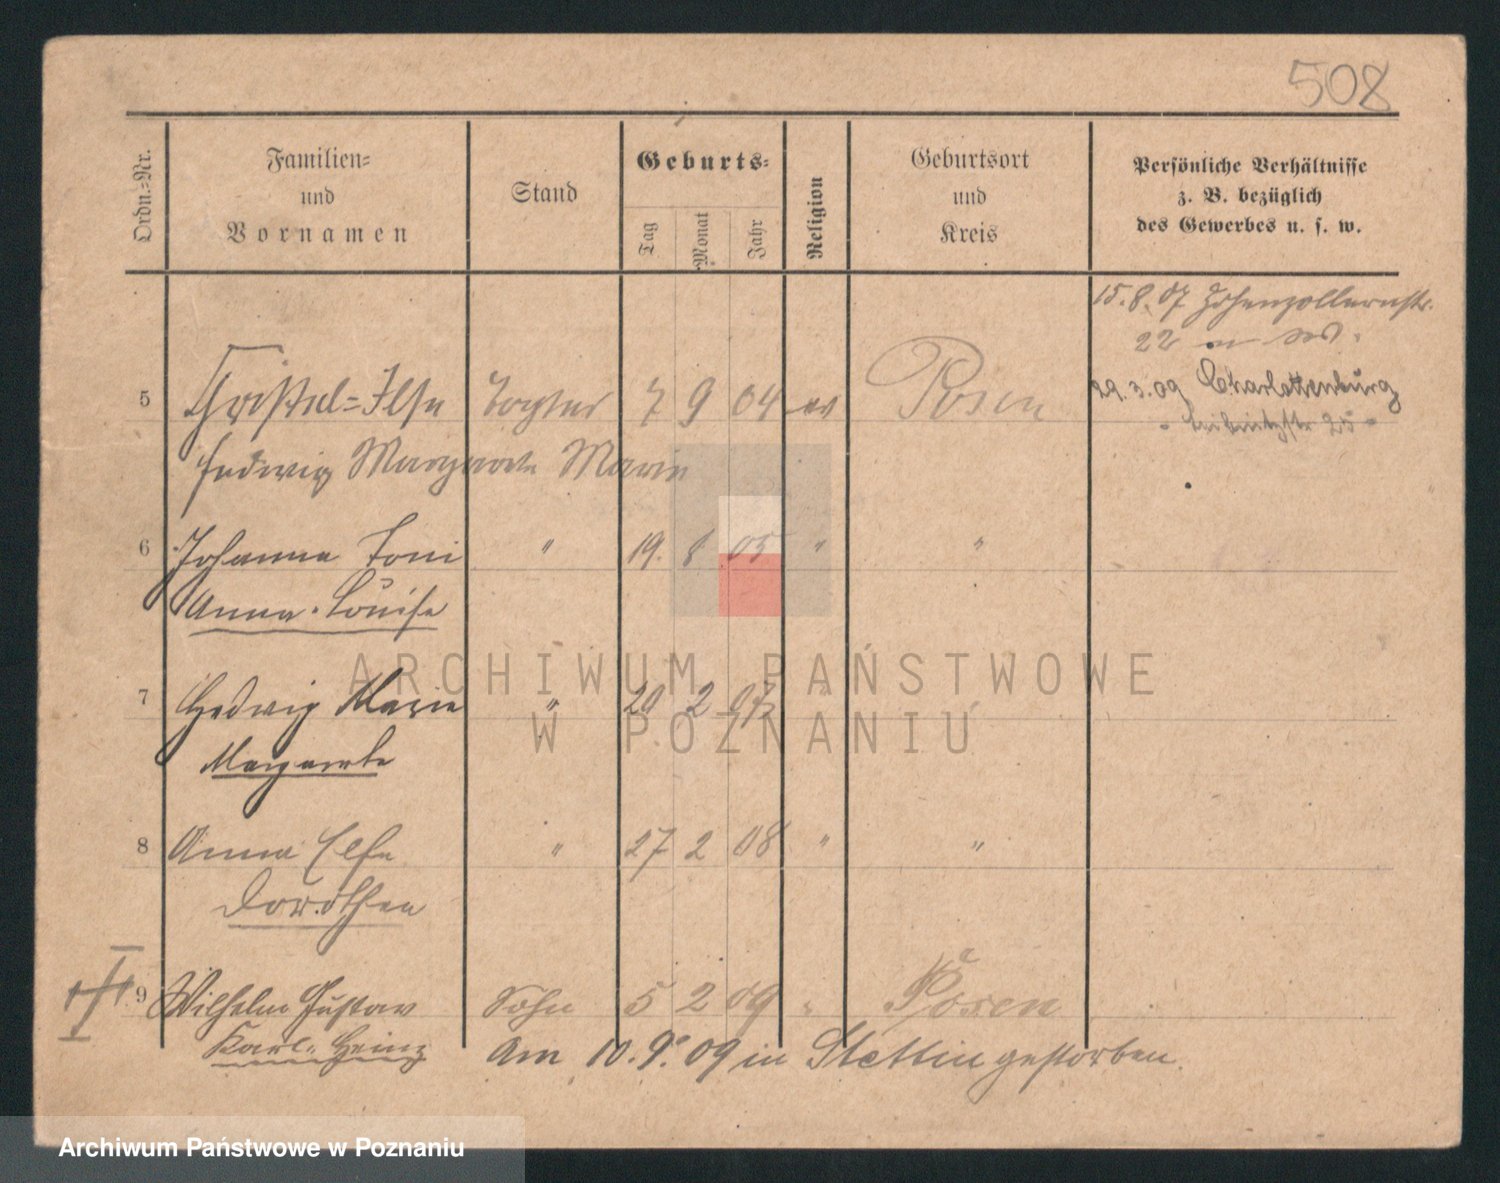 508
Ordn.=Nr.
Familien=
und
Vornamen
Stand
Geburts=
Tag
Monat
Jahr
Religion
Geburtsort
und
Kreis
Persönliche Verhältnisse
z. B. bezüglich
des Gewerbes u. s. w.
15.8.07 Hohenzollernstr.
22
5 Christel=Ilse Tochter 7 9 04 ev Posen 29.3.09 Charlottenburg
Leibnitzstr 25
Hedwig Margarete Marie
6 Johanna Toni " 19. 8 05 " "
Anna-Louise
7 Hedwig Marie " 20 2 07 "
Margarete
8 Anna Else " 27 2 08 " "
Dorothea
9 Wilhelm Gustav Sohn 5 2 09 " Posen
Karl-Heinz Am 10.9.09 in Stettin gestorben.
ARCHIWUM PAŃSTWOWE
W POZNANIU
Archiwum Państwowe w Poznaniu